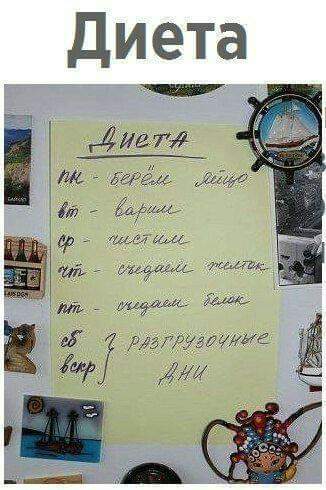 Диета
ДИЕТА
пн - берём яйцо
вт - варим
ср - чистим
чт - съедаем желток
пт - съедаем белок
сб } РАЗГРУЗОЧНЫЕ
вскр } ДНИ